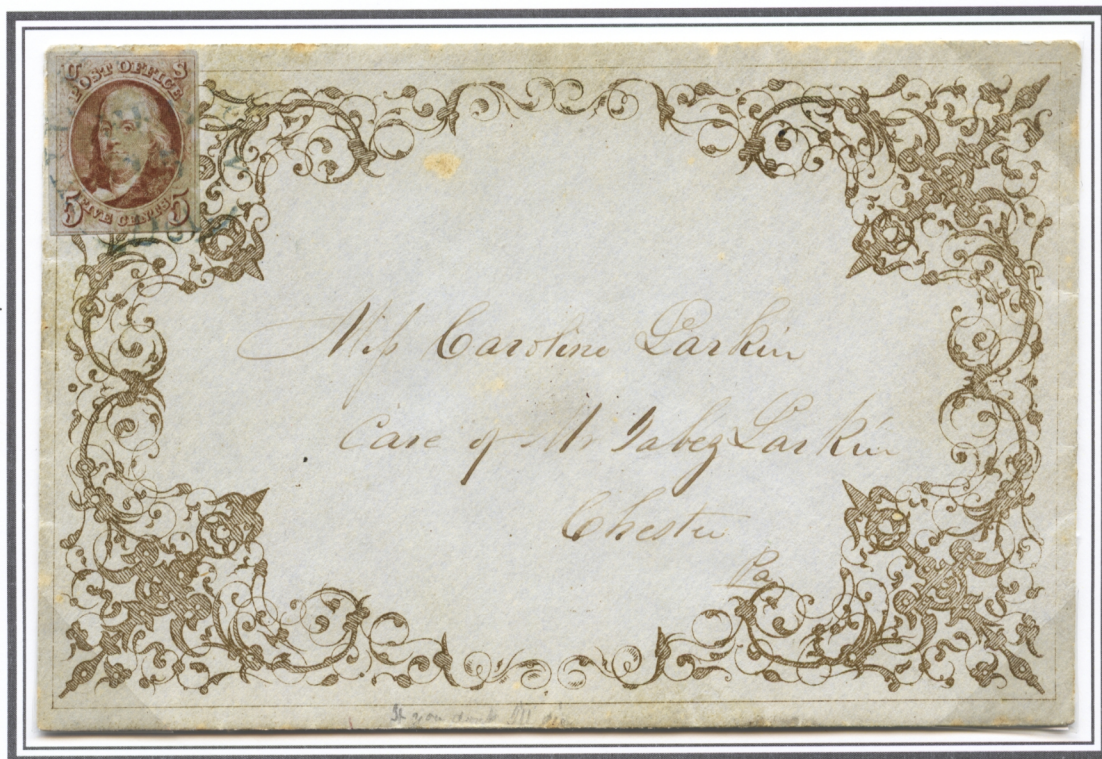 U S
POST OFFICE
5 FIVE CENTS 5
Miss Caroline Larkin
Care of Mr Jabez Larkin
Chester
Pa
If you